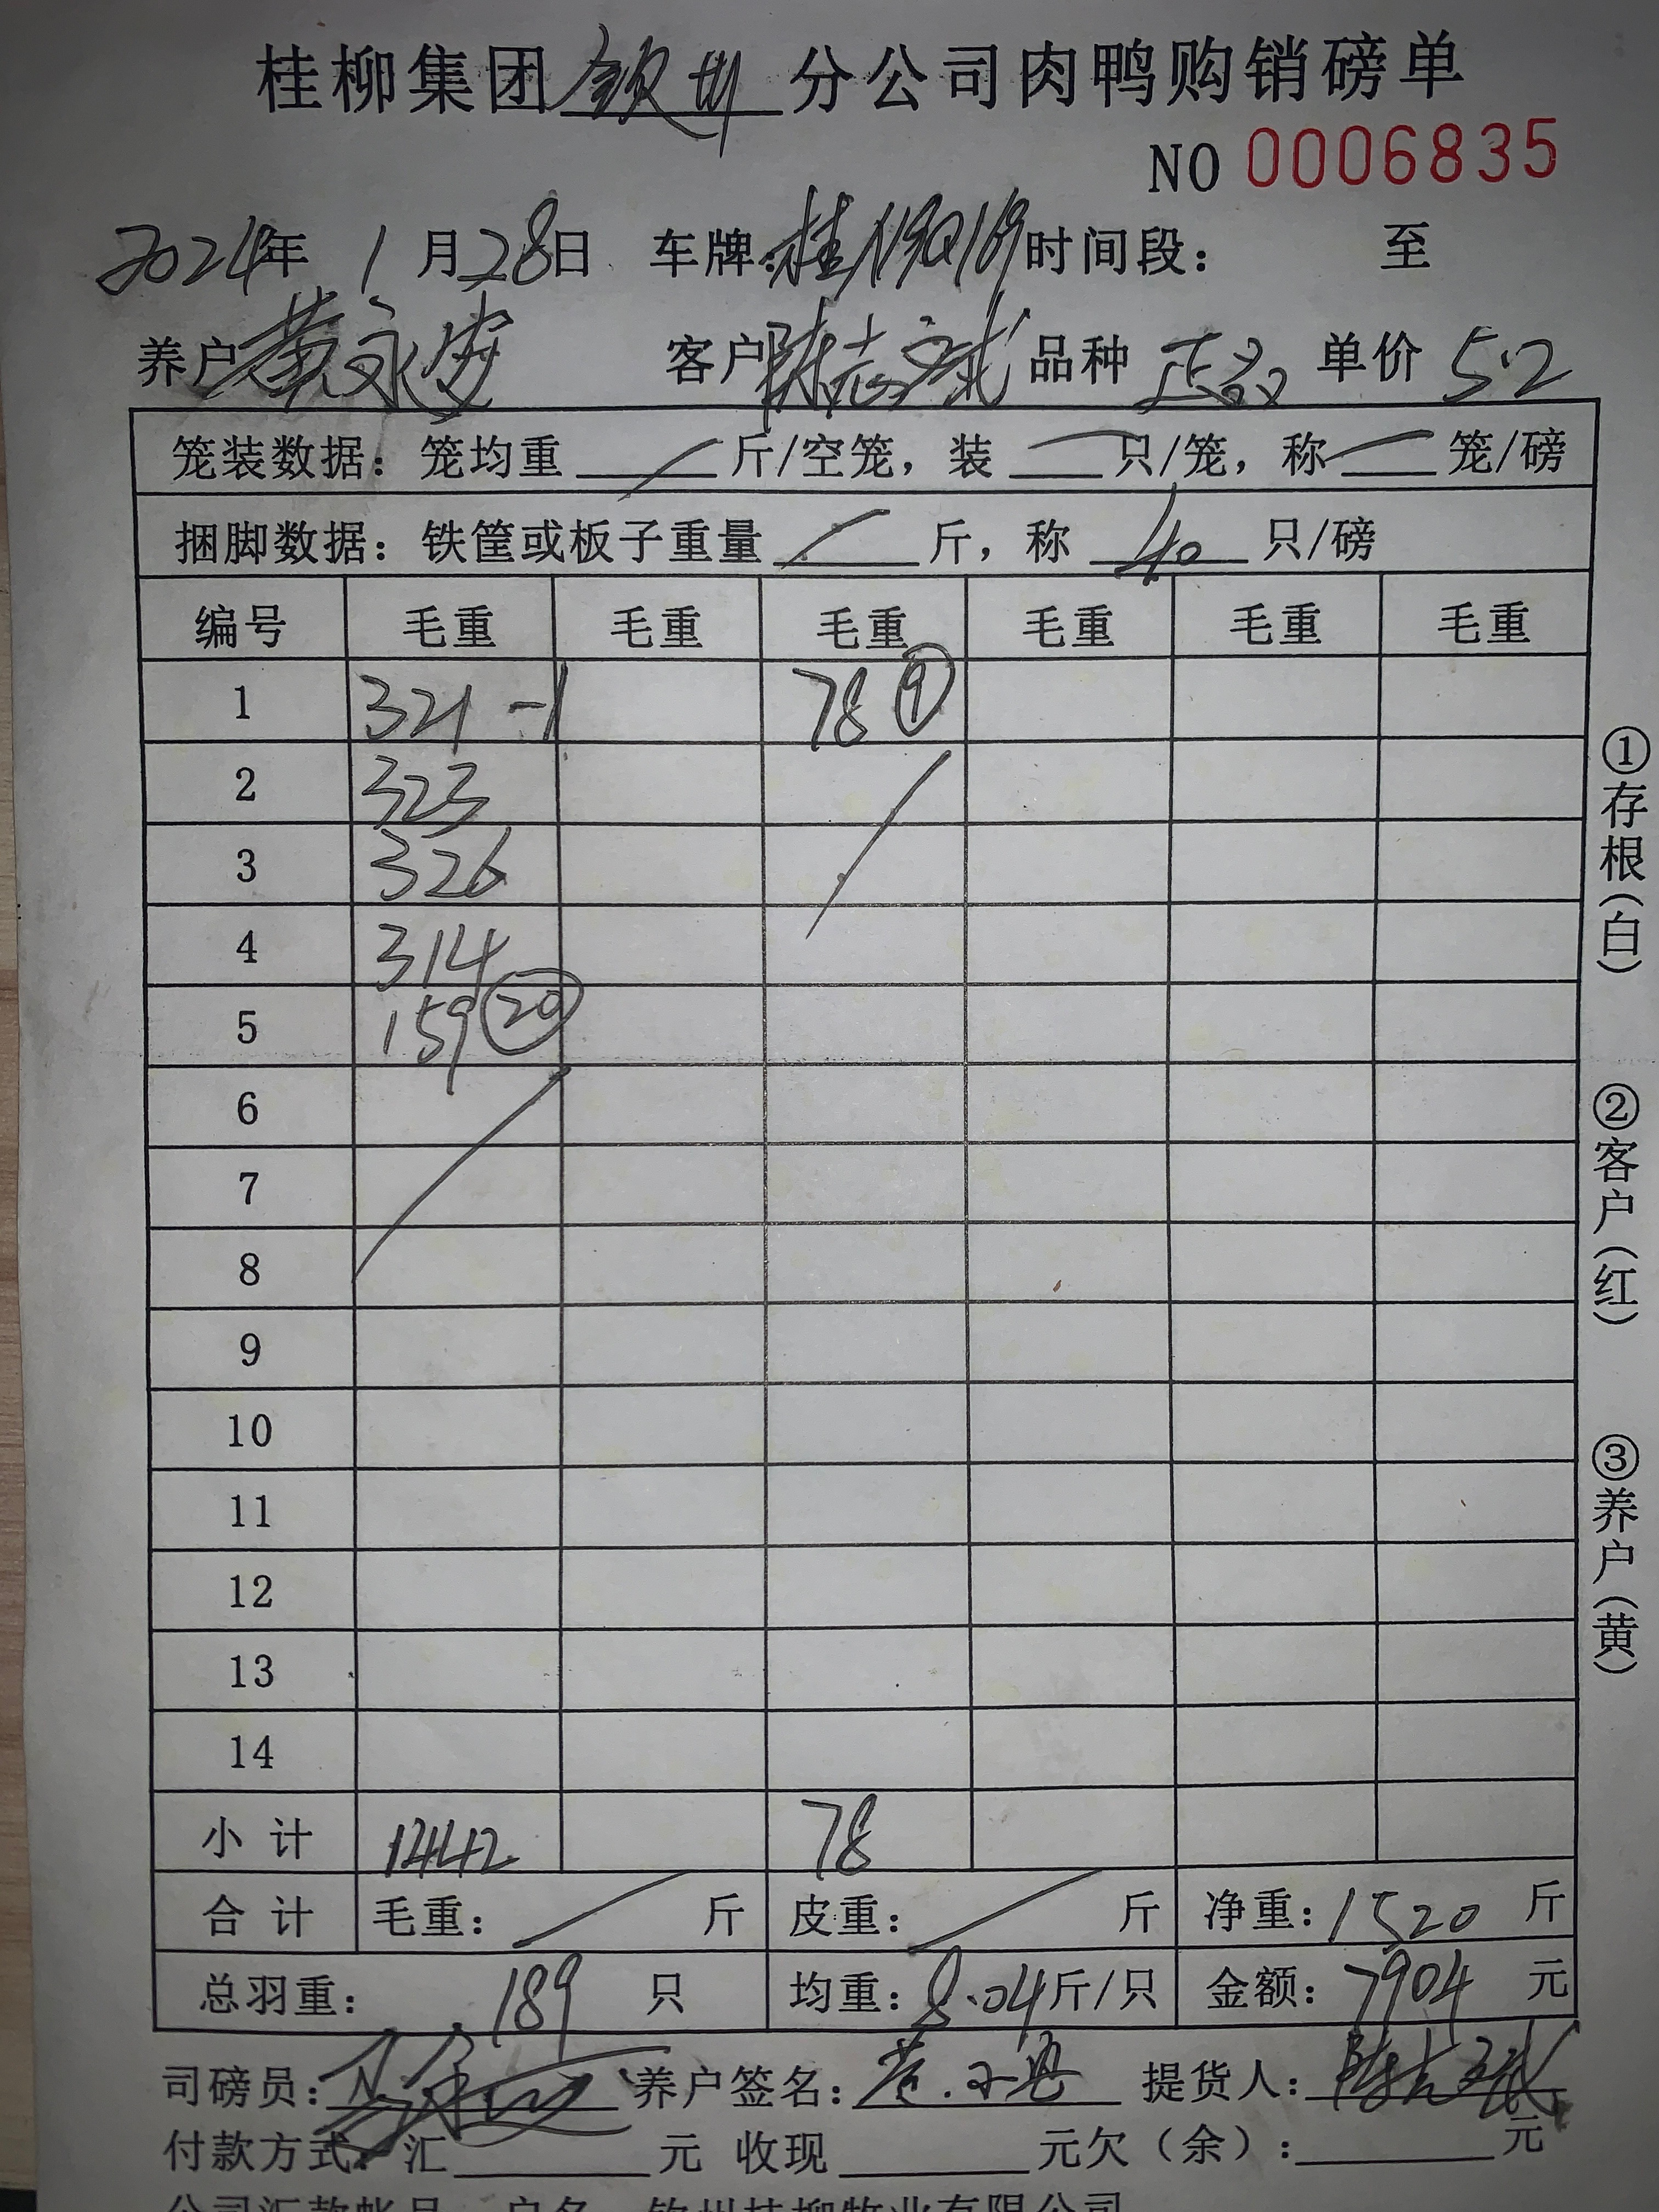 桂柳集团钦州分公司肉鸭购销磅单
NO 0006835
2024年 1月28日 车牌:桂N9Q169时间段: 至
养户黄永安 客户陈志斌 品种 正品 单价 5.2
笼装数据: 笼均重 斤/空笼, 装 只/笼, 称 笼/磅
捆脚数据: 铁筐或板子重量 斤, 称 40 只/磅
编号 毛重 毛重 毛重 毛重 毛重 毛重
1 321 -1 78 ⑨
2 323
3 326
4 314
5 159 ⑳
6
7
8
9
10
11
12
13
14
小计 1442 78
合计 毛重: 斤 皮重: 斤 净重: 1520 斤
总羽重: 189 只 均重: 8.04斤/只 金额: 7904 元
司磅员: 养户签名: 提货人:
付款方式: 汇 元 收现 元欠(余): 元
公司汇款帐号 户名 钦州桂柳牧业有限公司
①存根(白)
②客户(红)
③养户(黄)